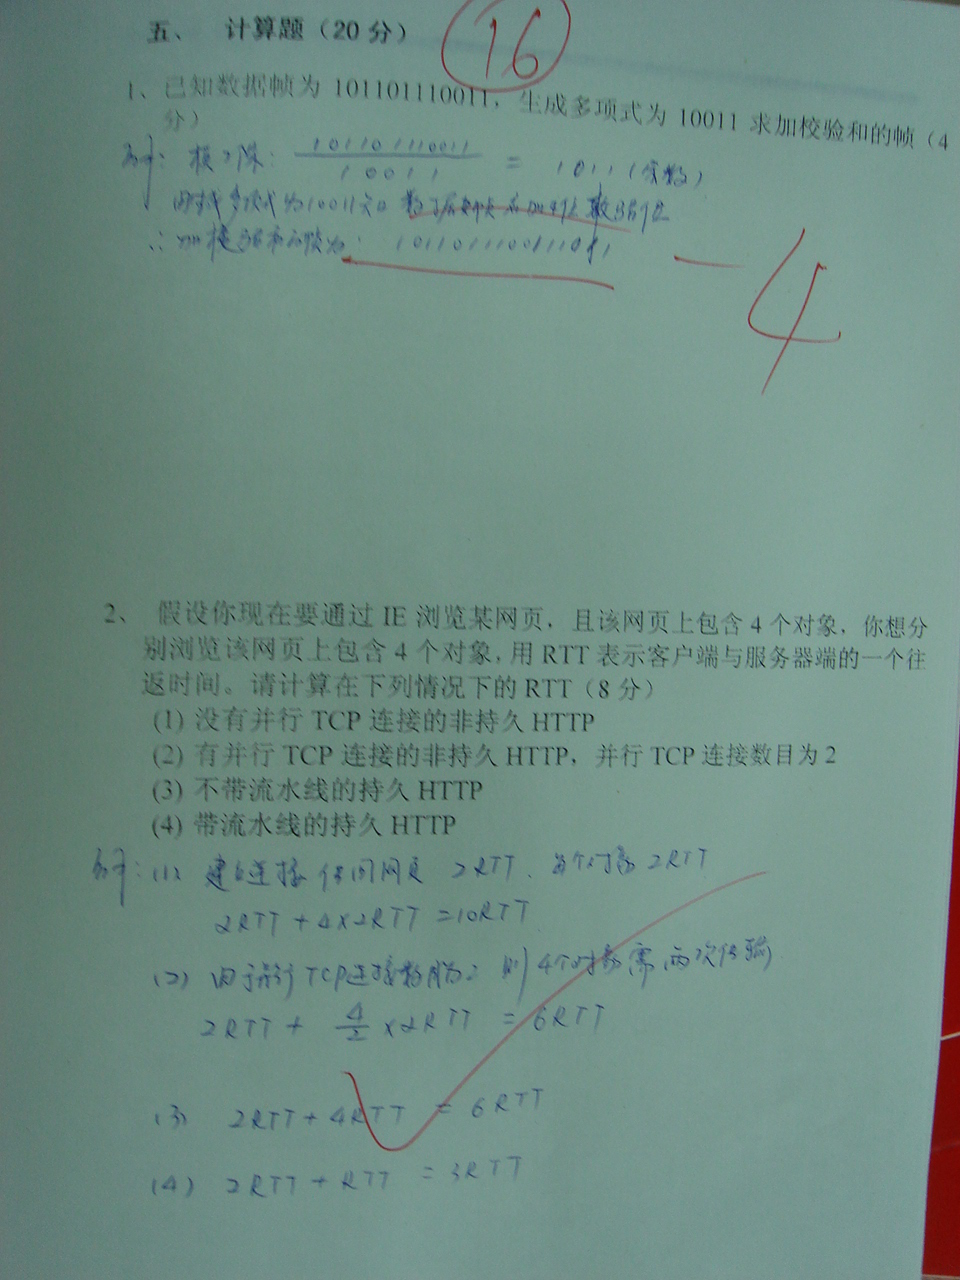 五、 计算题（20 分）
16
1、已知数据帧为 101101110011，生成多项式为 10011 求加校验和的帧（4
分）
解: 模2除: 101101110011 / 10011 = 1011 (余数)
由生成多项式为10011知 数据帧后加4位数据位
∴ 加校验和的帧为: 1011011100111011
-4
2、 假设你现在要通过 IE 浏览某网页，且该网页上包含 4 个对象，你想分
别浏览该网页上包含 4 个对象，用 RTT 表示客户端与服务器端的一个往
返时间。请计算在下列情况下的 RTT（8 分）
(1) 没有并行 TCP 连接的非持久 HTTP
(2) 有并行 TCP 连接的非持久 HTTP，并行 TCP 连接数目为 2
(3) 不带流水线的持久 HTTP
(4) 带流水线的持久 HTTP
解: (1) 建立连接 访问网页 2RTT. 每个对象 2RTT
2RTT + 4×2RTT = 10RTT
(2) 由于并行TCP连接数目为2 则4个对象需两次传输.
2RTT + 4/2 ×2RTT = 6RTT
(3) 2RTT + 4RTT = 6RTT
(4) 2RTT + RTT = 3RTT